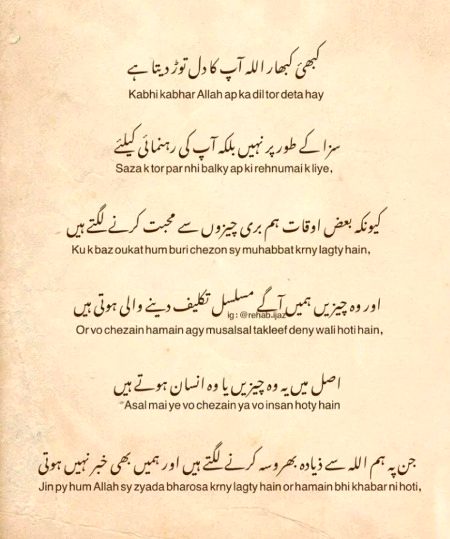 کبھئ کبھار اللہ آپ کا دل توڑ دیتا ہے
Kabhi kabhar Allah ap ka dil tor deta hay
سزا کے طور پر نہیں بلکہ آپ کی رہنمائی کیلئے
Saza k tor par nhi balky ap ki rehnumai k liye,
کیونکہ بعض اوقات ہم بری چیزوں سے محبت کرنے لگتے ہیں
Ku k baz oukat hum buri chezon sy muhabbat krny lagty hain,
اور وہ چیزیں ہمیں آگے مسلسل تکلیف دینے والی ہوتی ہیں
ig : @rehab.ijaz
Or vo chezain hamain agy musalsal takleef deny wali hoti hain,
اصل میں یہ وہ چیزیں یا وہ انسان ہوتے ہیں
“Asal mai ye vo chezain ya vo insan hoty hain
جن پہ ہم اللہ سے ذیادہ بھروسہ کرنے لگتے ہیں اور ہمیں بھی خبر نہیں ہوتی
Jin py hum Allah sy zyada bharosa krny lagty hain or hamain bhi khabar ni hoti,